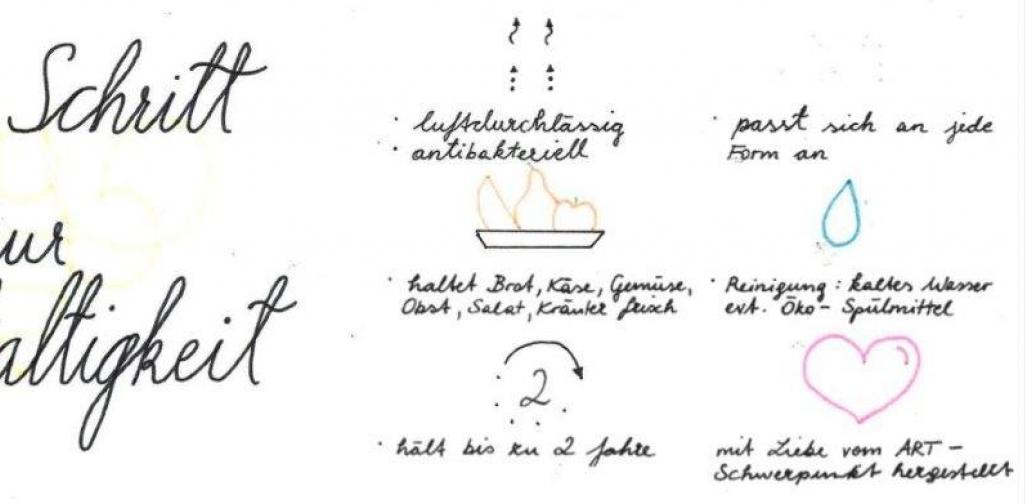 Schritt
ur
altigkeit
· luftdurchlässig
· antibakteriell
· haltet Brot, Käse, Gemüse,
Obst, Salat, Kräuter frisch
2
· hält bis zu 2 Jahre
· passt sich an jede
Form an
· Reinigung: kaltes Wasser
evt. Öko- Spülmittel
mit Liebe vom ART -
Schwerpunkt hergestellt